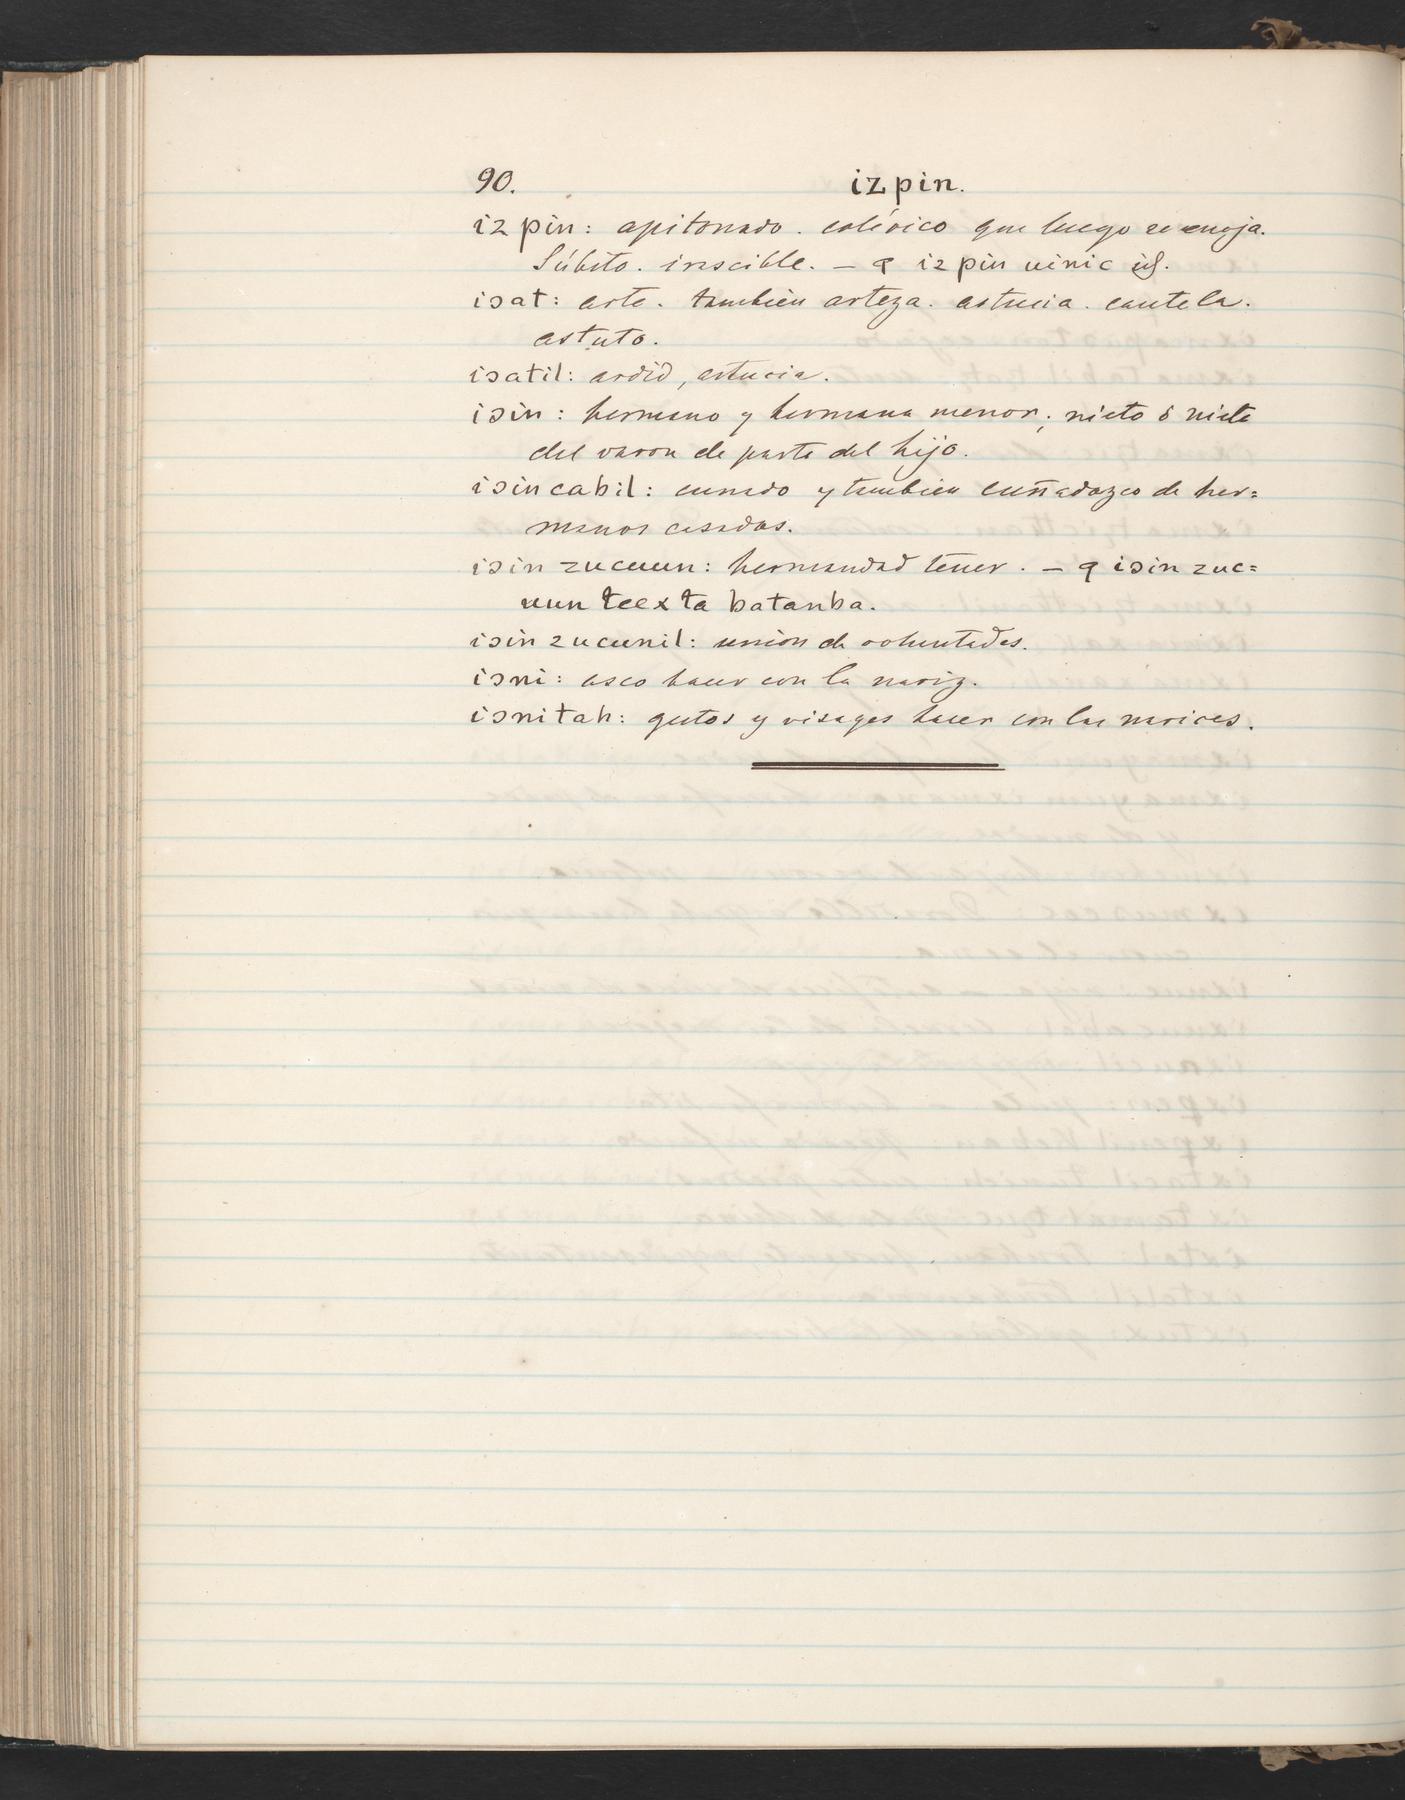 90. iz pin.
iz pin: apitonado. colérico que luego se enoja.
Súbito. irascible. — q iz pin uinic
iɔat: arte. tambien arteza. astucia. cautela.
astuto.
iɔatil: ardid, astucia.
iɔin: hermano y hermana menor; nieto ó nieta
del varon de parte del hijo.
iɔin cabil: cunado y tambien cuñadazgo de her=
manos casados.
iɔin zucuun: hermandad tener. — q iɔin zuc=
uun teex ta batanba.
iɔin zucunil: union de voluntades.
iɔni: asco hacer con la nariz.
iɔnitah: gestos y visages hacer con las narices.